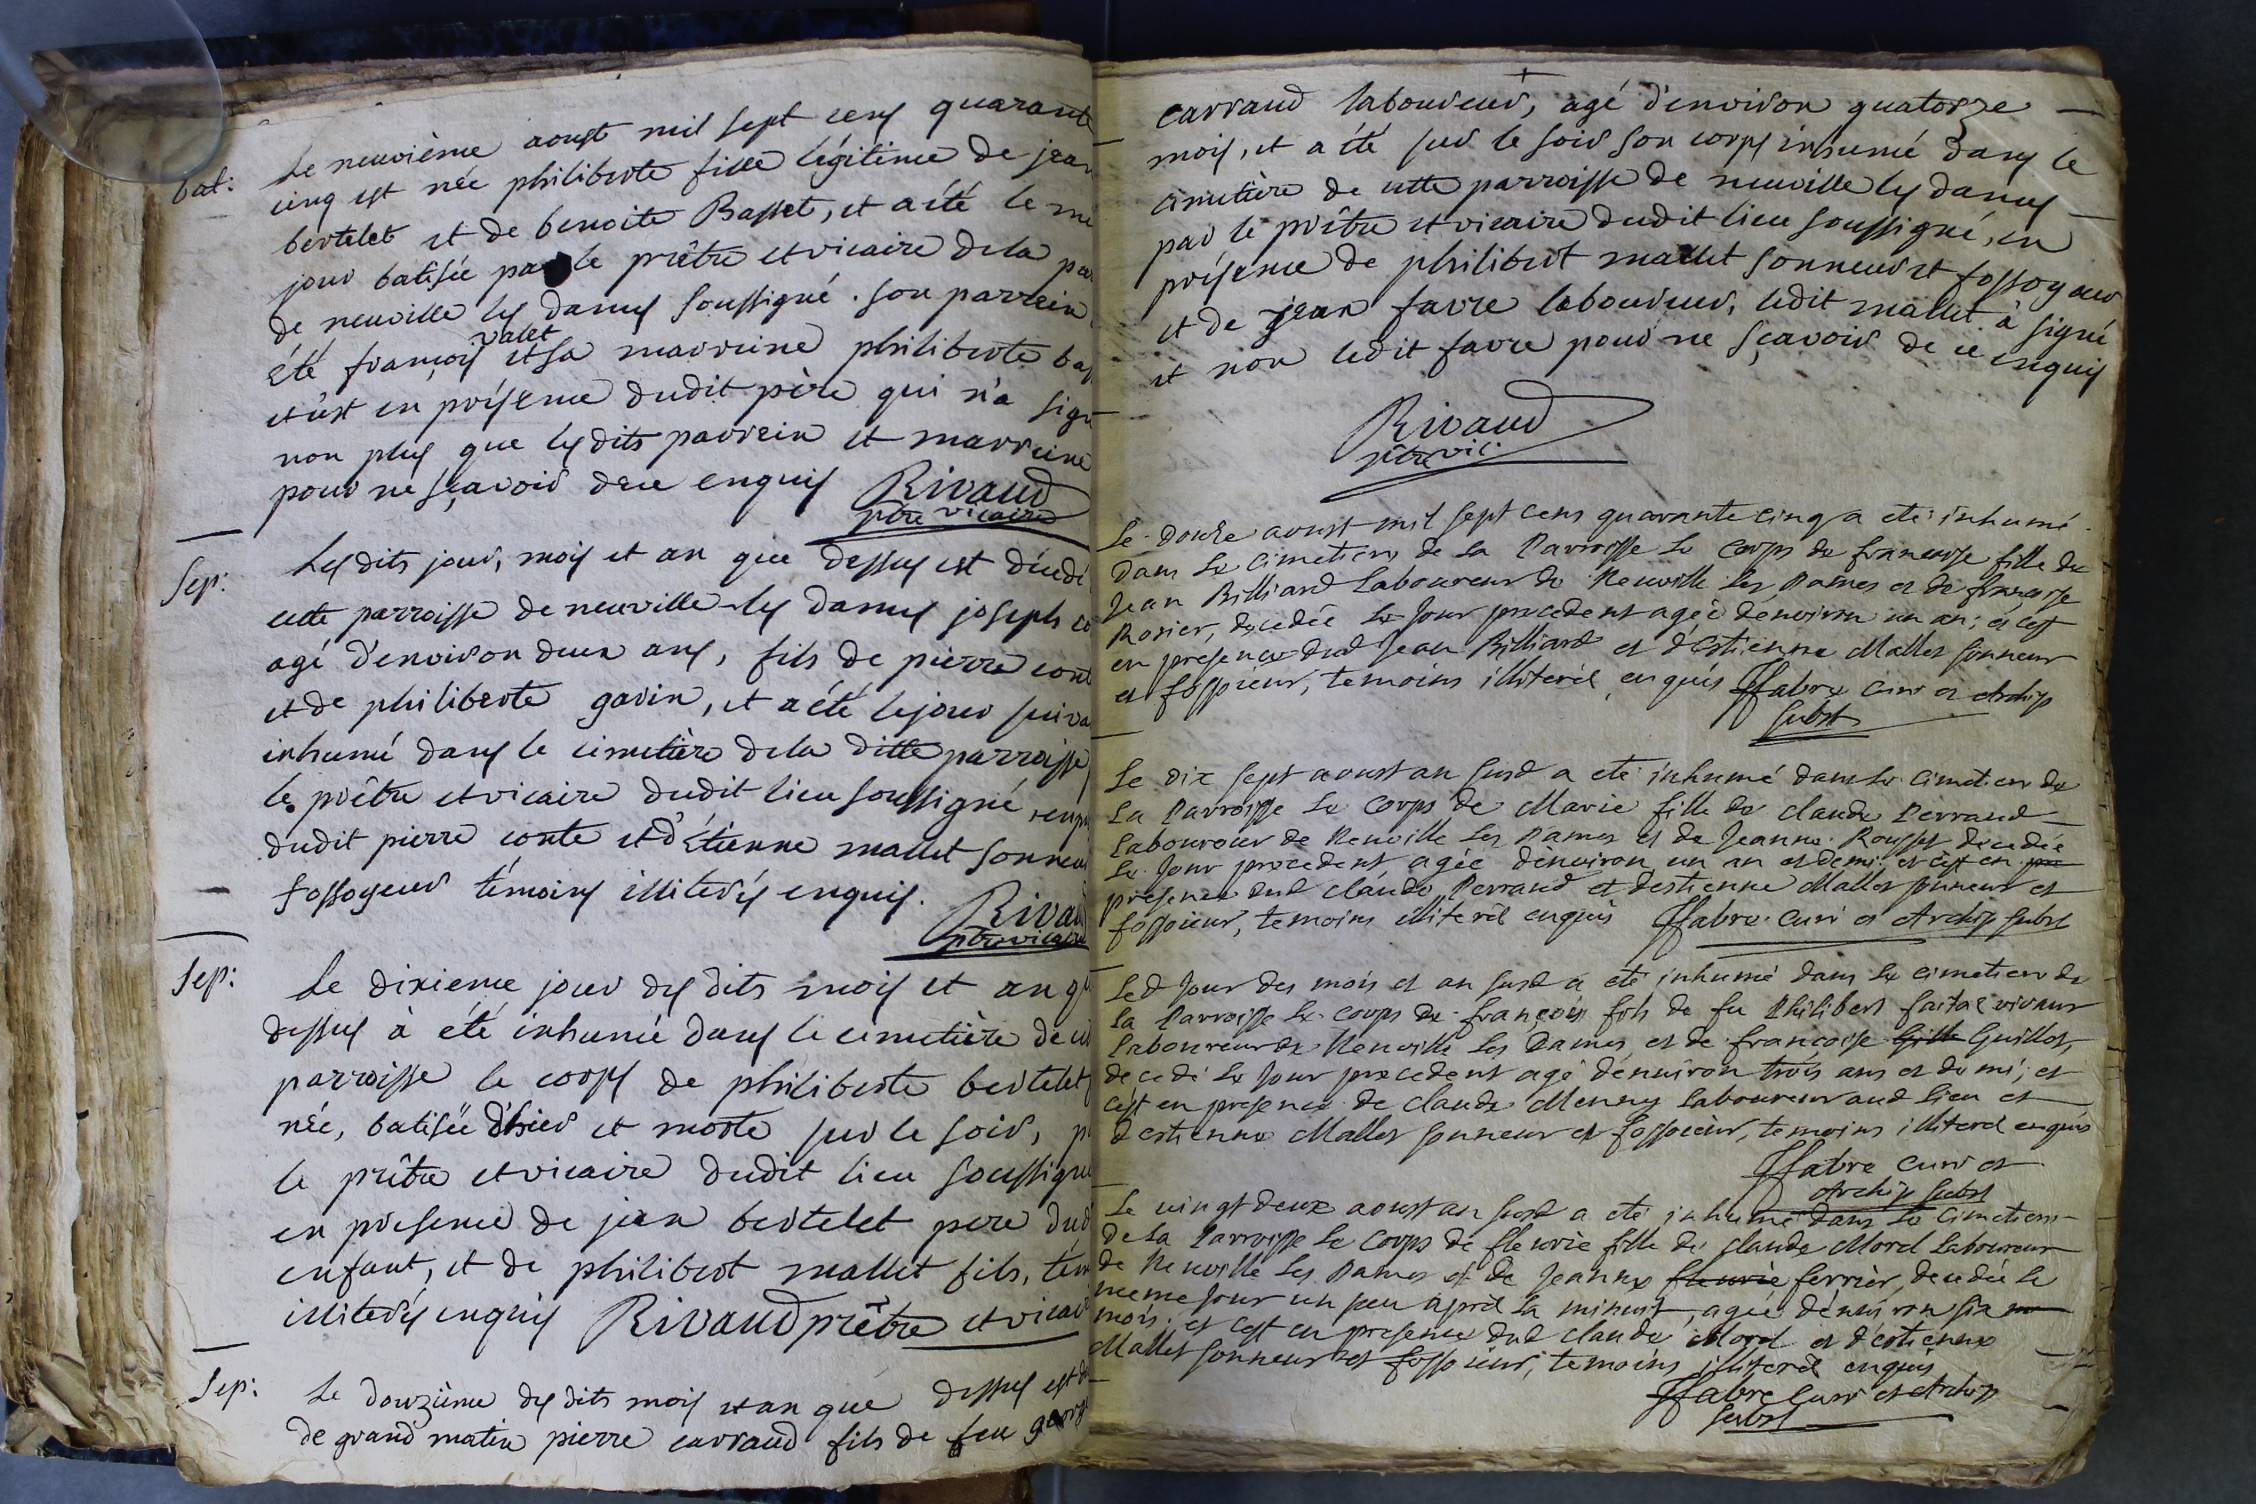 bat:
Le neuvième aoust mil sept cens quarante
cinq est née philiberte fille légitime de jean
bertelet et de benoite Basset, et a été le mê
jour batisée par le prêtre et vicaire de la par
de neuville les dames soussigné. son parrein a
valet
été françois et sa marreine philiberte bass
et c'est en présence dudit père qui n'a signé
non plus que lesdits parrein et marreine
pour ne sçavoir de ce enquis Rivaud
ptre vicaire
Sep:
Les dits jour, mois et an que dessus est décédé
cette parroisse de neuville les dames joseph co
agé d'environ deux ans, fils de pierre cont
et de philiberte gavin, et a été le jour suiva
inhumé dans le cimetière de la ditte parroisse
le prêtre et vicaire dudit lieu soussigné, en pr
dudit pierre conte et d'étienne mallet sonneur
fossoyeur témoins illiterés enquis.
Rivaud
ptre vicaire
Sep:
Le dixieme jour des dits mois et an qu
dessus à été inhumée dans le cimetière de cet
parroisse le corps de philiberte bertelet
née, batisée d'hier et morte sur le soir, p
le prêtre et vicaire dudit lieu soussigné
en présence de jean bertelet pere dud
enfant, et de philibert mallet fils, tém
illiterés enquis Rivaud prêtre et vicaire
Sep:
Le douzième des dits mois et an que dessus est dé
de grand matin pierre carraud fils de feu george
carraud laboureur, agé d'environ quatorze
mois, et a été sur le soir son corps inhumé dans le
cimetière de cette parroisse de neuville les dames
par le prêtre et vicaire dudit lieu soussigné, en
présence de philibert mallet sonneur et fossoyeur
et de jean favre laboureur, ledit mallet à signé
et non ledit favre pour ne sçavoir de ce enquis
Rivaud
ptre vic:
Le douze aoust mil sept cens quarante cinq a eté inhumé
dans le cimetiere de la Parroisse le corps de francoise fille de
Jean Billiard Laboureur de Neuville les Dames et de francoise
Rosier, decedée le Jour precedent agée denviron un an; et c'est
en presence dud Jean Billiard et d'Estienne Mallet sonneur
et fossoieur, temoins illiterés enquis ffabre curé et Archip
subst
Le dix sept aoust an susd a eté inhumé dans le cimetiere de
La Parroisse le corps de Marie fille de claude Perraud
Laboureur de Neuville les Dames et de Jeanne Rousset decedée
le Jour precedent agée denviron un an et demi et c'est en pre
presence dud claude Perraud et destienne Mallet sonneur et
fossoieur, temoins illiterés enquis ffabre curé et Archip subst
Led Jour des mois et an susd a eté inhumé dans le cimetiere de
La Parroisse le corps de françois fils de fu Philibert faital vivant
Laboureur de Neuville les Dames et de francoise Gille Guillot,
decedé le Jour precedent agé denviron trois ans et demi; et
c'est en presence de claude Menny Laboureur aud lieu et
destienne Mallet sonneur et fossoieur, temoins illiterés enquis
ffabre curé et
Archip subst
Le vingt deux aoust an susd a eté inhumé dans le cimetiere
de La Parroisse le corps de fleurie fille de claude Morel Laboureur
de Neuville les Dames et de Jeanne fleurie ferrier, decedée le
meme Jour un peu après la minuit, agée denviron six m
mois. et c'est en presence dud claude Morel et d'estienne
Mallet sonneur et fossoieur, temoins illiterés enquis
ffabre curé et Archip
subst